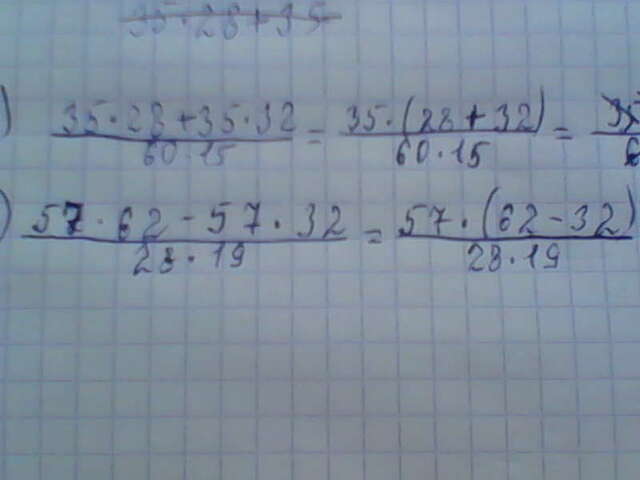 35·28+35
) 35·28+35·32 / 60·15 = 35·(28+32) / 60·15 = 35 / 6
) 57·62-57·32 / 28·19 = 57·(62-32) / 28·19